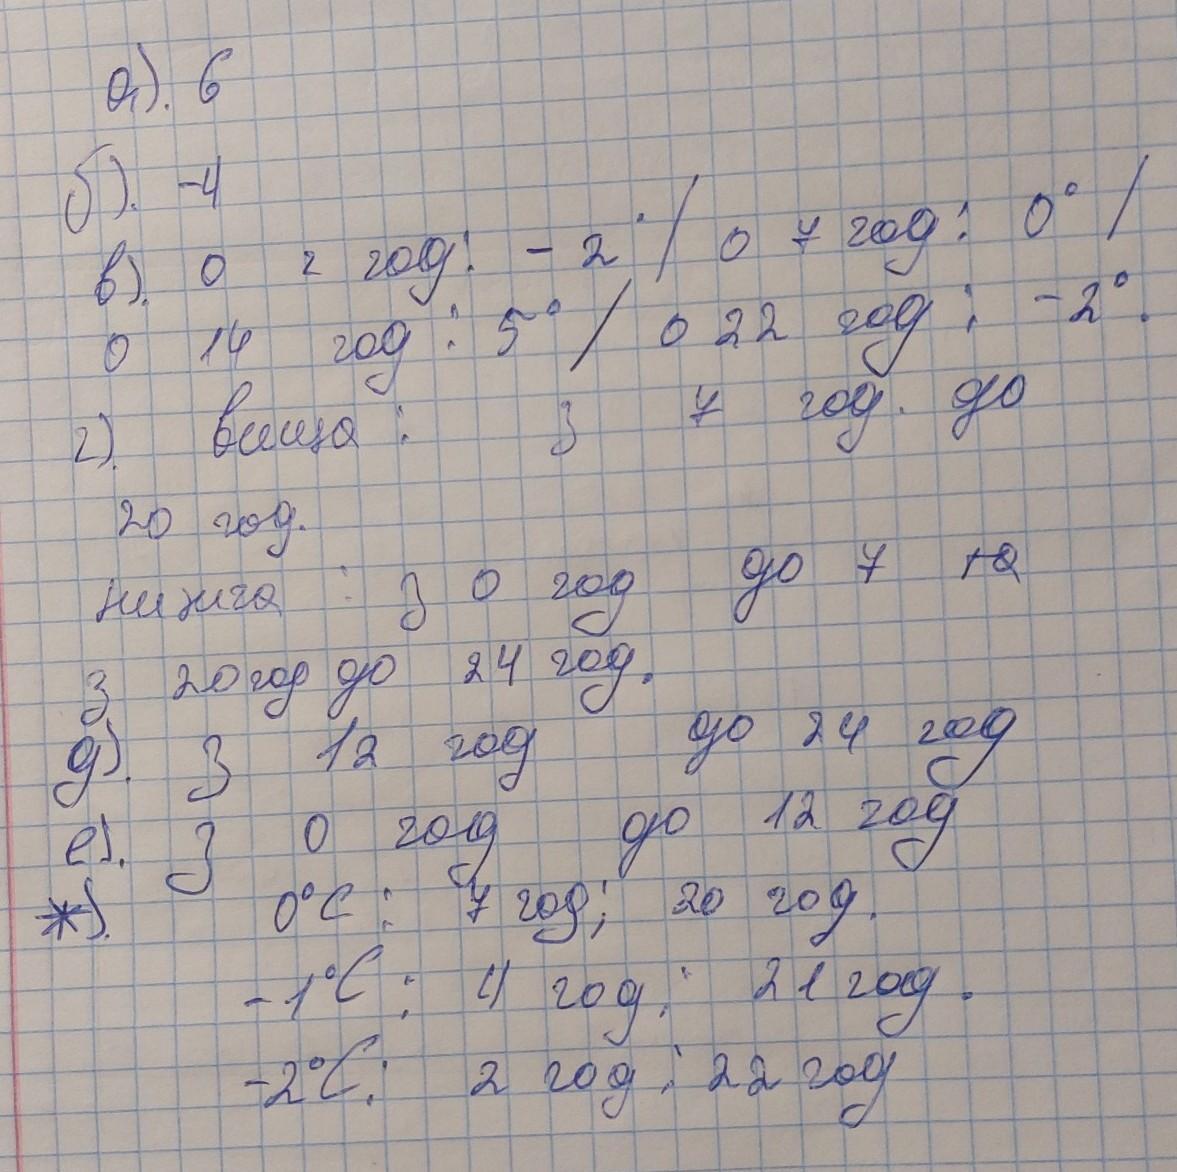 а). 6
б). -4
в). О 2 год: -2° / о 7 год: 0° /
о 14 год: 5° / о 22 год: -2°.
г). вища: з 7 год. до
20 год.
нижча: з 0 год до 7 та
з 20 год до 24 год.
д). З 12 год до 24 год
е). З 0 год до 12 год
ж). 0°C: 7 год; 20 год.
-1°C: 4 год; 21 год.
-2°C: 2 год; 22 год